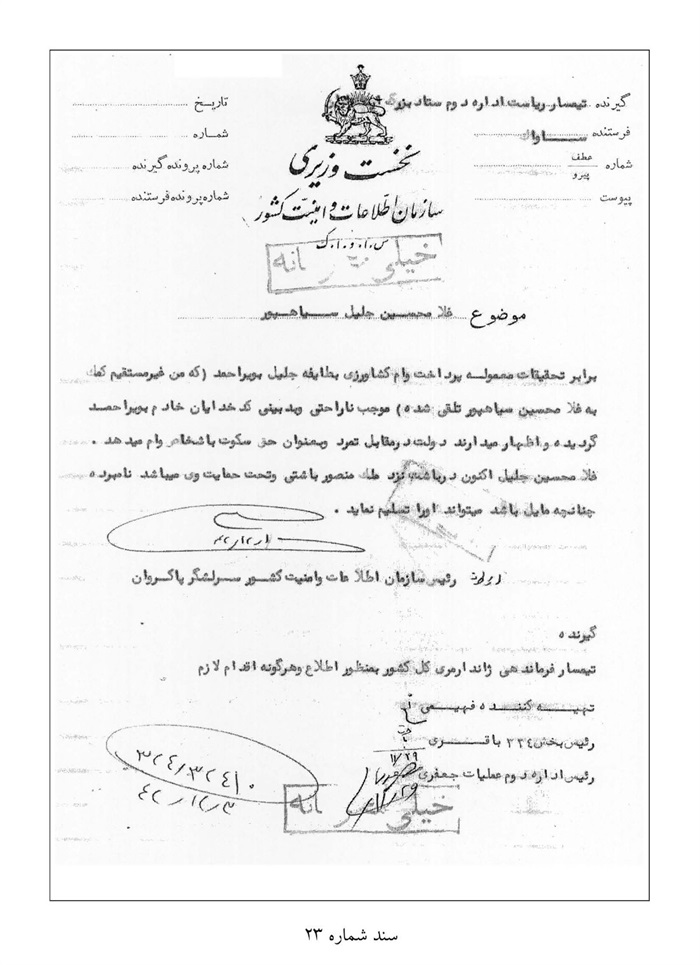 گیرنده تیمسار ریاست اداره دوم ستاد بزرگ
فرستنده ساواك
شماره عطف پیرو
پیوست
تاریخ
شماره
شماره پرونده گیرنده
شماره پرونده فرستنده
نخست وزیری
سازمان اطلاعات و امنیت کشور
س.ا.و.ا.ک
خیلی محرمانه
موضوع غلامحسین جلیل سیاهپور
برابر تحقیقات معموله پرداخت وام کشاورزی بطایفه جلیل بویراحمد (که من غیرمستقیم کمک
به غلامحسین سیاهپور تلقی شده) موجب ناراحتی وبدبینی کدخدایان خادم بویراحمد
گردیده و اظهار میدارند دولت درمقابل تمرد وبعنوان حق سکوت باشخاص وام میدهد .
غلامحسین جلیل اکنون درباشت نزد ملك منصور باشتی وتحت حمایت وی میباشد نامبرده
چنانچه مایل باشد میتواند اورا تسلیم نماید .
۴۲/۱۲/۱
رئیس سازمان اطلاعات وامنیت کشور سرلشگر پاکروان
گیرنده
تیمسار فرماندهی ژاندارمری کل کشور بمنظور اطلاع وهرگونه اقدام لازم
تهیه کننده فهیمی
رئیس بخش ۳۲۴ باقری
۱۱/۲۹
رئیس اداره دوم عملیات جعفری
۱۱/۲۹
۳۲۴/۳۲۴۱۰
۴۲/۱۲/۳
خیلی محرمانه
سند شماره ۲۳